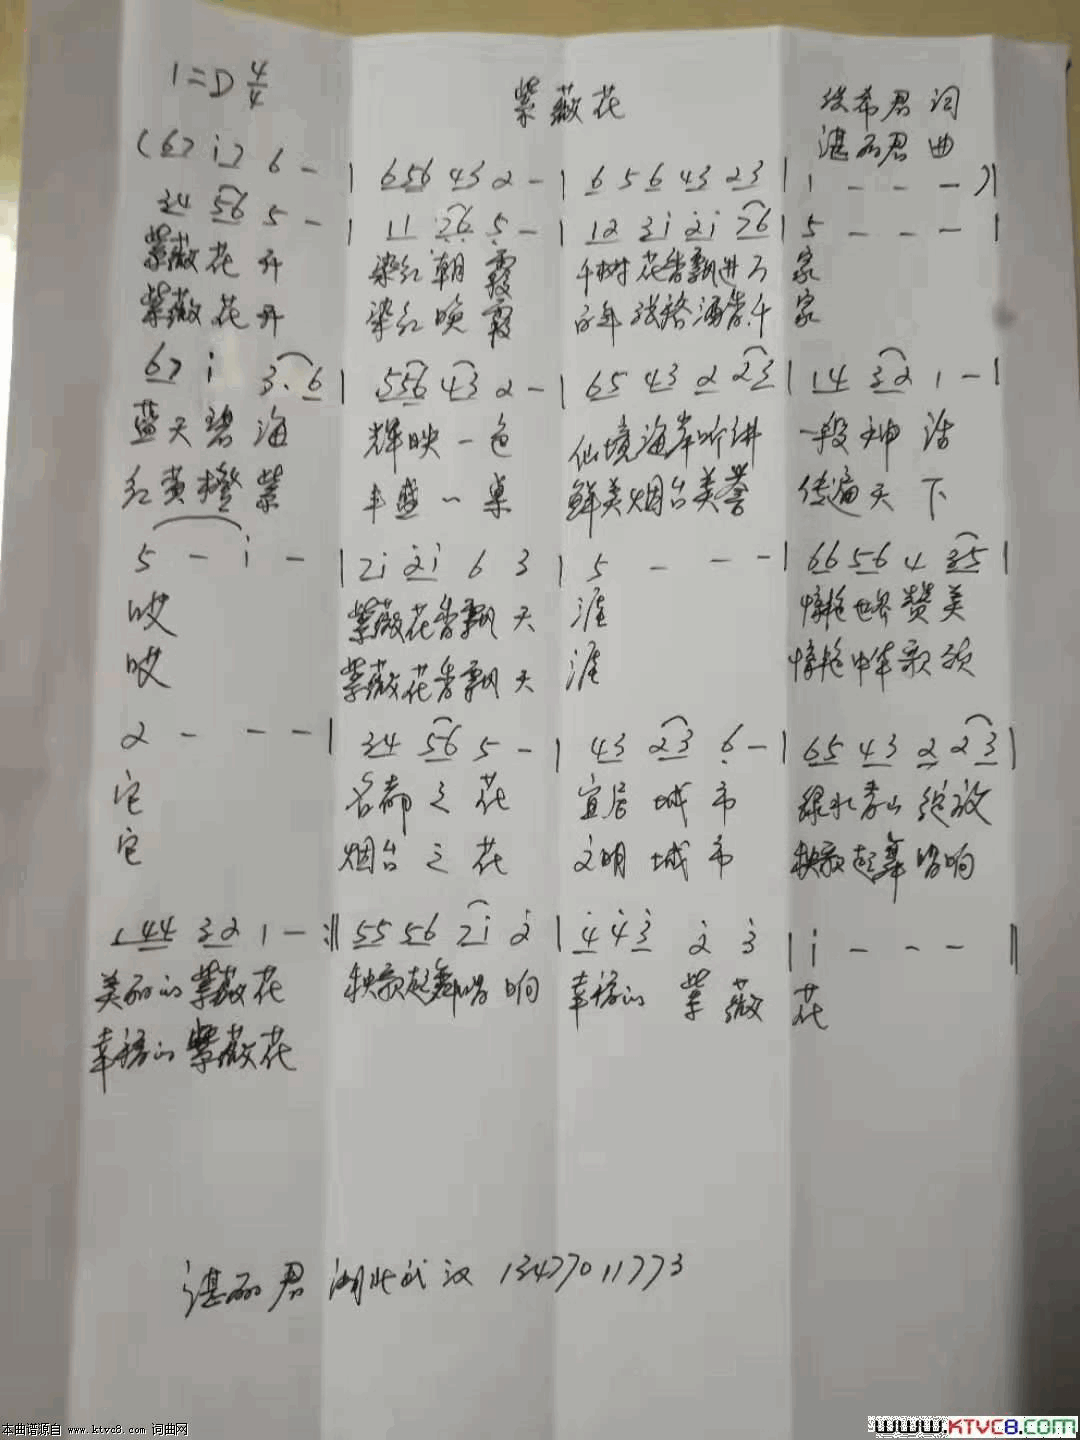 1=D 4/4
紫薇花
希君 词
湛丽君 曲
(67 i7 6 - | 656 43 2 - | 6 5 6 43 23 | 1 - - - )|
34 56 5 - | 11 76 5 - | 12 3i 2i 76 | 5 - - - |
紫薇花开 染红朝霞 千树花香飘进万 家
紫薇花开 染红晚霞 百年 洒香千 家
67 i 3. 6 | 556 43 2 - | 65 43 2 23 | 14 32 1 - |
蓝天碧海 辉映一色 仙境海岸听讲 一段神话
红黄橙紫 丰盛一桌 鲜美烟台美誉 传遍天下
5 - i - | 2i 2i 6 3 | 5 - - - | 66 56 4 35 |
哎 紫薇花香飘天 涯 惊艳世界赞美
哎 紫薇花香飘天 涯 惊艳中华歌颂
2 - - - | 34 56 5 - | 43 23 6 - | 65 43 2 23 |
它 名都之花 宜居城市 绿水青山绽放
它 烟台之花 文明城市 秧歌起舞唱响
1 44 32 1 - :‖ 55 56 7i 2 | 4 43 2 3 | i - - - ‖
美丽的紫薇花 秧歌起舞唱响 幸福的 紫薇 花
幸福的紫薇花
湛丽君 湖北武汉 13477011773
本曲谱源自 www.ktvc8.com 词曲网
www.KTVC8.com